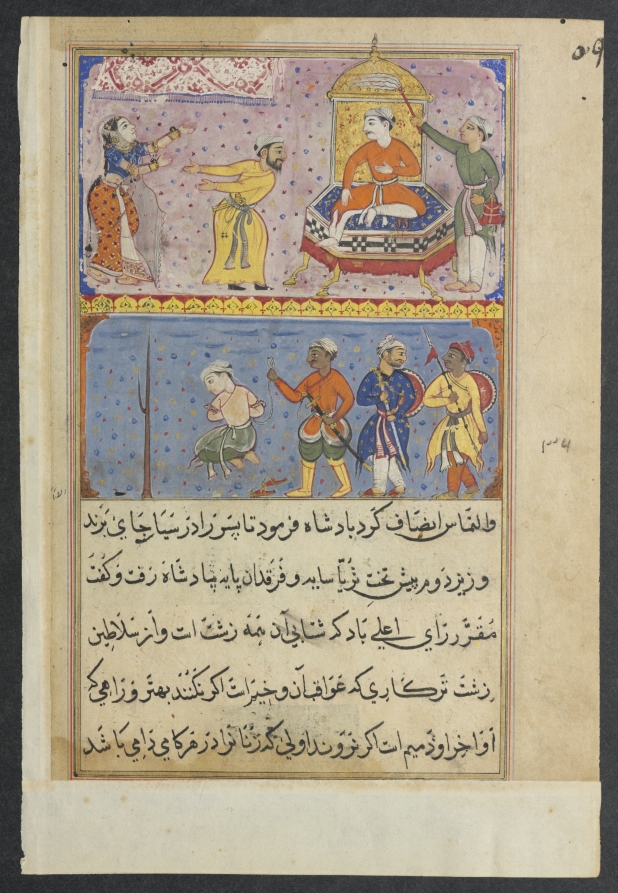 والتماس انصاف کرد بادشاه فرمود تا پسر را در سیاجای برند
وزیر دوم پیش تخت ثریا سایه و فرقدان پایه بادشاه رفت و گفت
مقرر رای اعلی باد که شتابی آن همه زشت است و از سلاطین
زشت تر کاری که عواقب آن است اکر نکنند بهتر و راهی که
اواخر او ذمیم است اکر نروند اولی که زنانرا در هر کامی دامی باشد